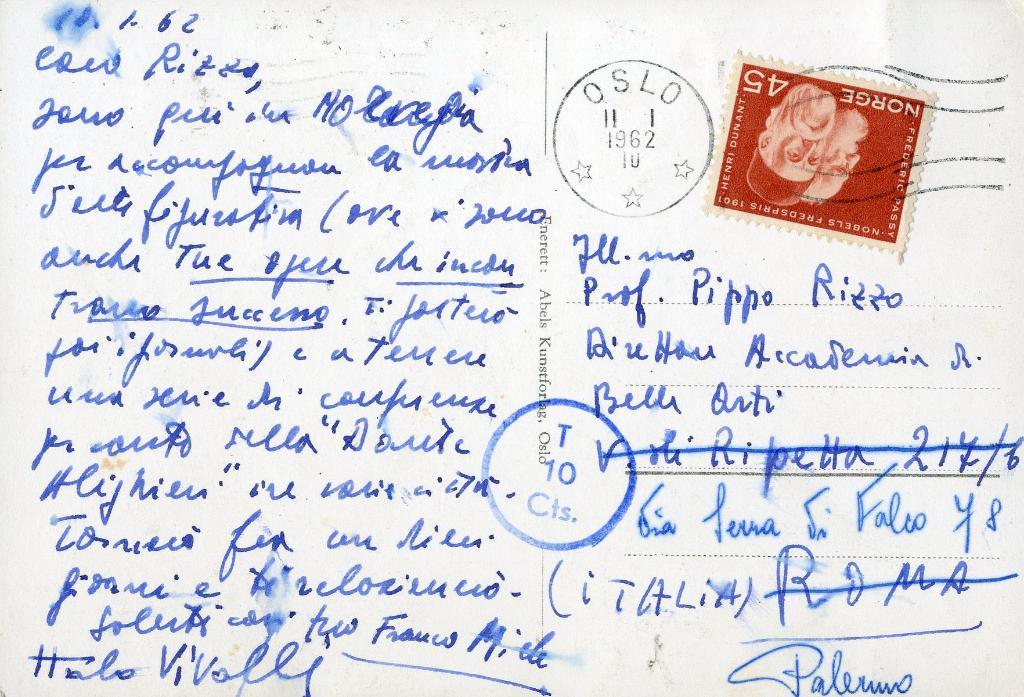 1. 62
Caro Rizzo,
sono qui in Norvegia
per accompagnare la mostra
d'arte figurativa (ove vi sono
anche Tue opere che incon
trano successo. Ti porterò
poi i giornali) e a tenere
una serie di conferenze
per conto della "Dante
Alighieri" in varie città.
Tornerò fra un dieci
giorni e ti relazionerò.
Saluti cari tuo Franco Miele
Italo Vivalli
Enerett: Abels Kunstforlag, Oslo
OSLO
11 1
1962
10
NORGE 45
FREDERIC PASSY
HENRI DUNANT
NOBELS FREDSPRIS 1901
T
10
Cts.
Ill.mo
Prof. Pippo Rizzo
Direttore Accademia di
Belle Arti
V. di Ripetta 217/6
Via Serra di Falco 78
(ITALIA) ROMA
Palermo